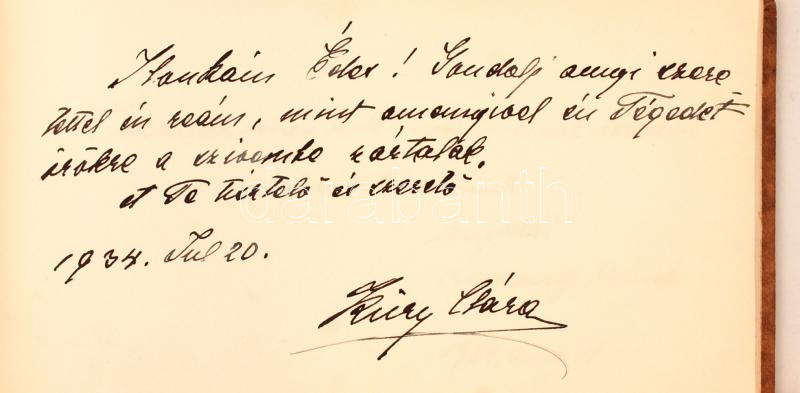 Ilonkám Édes! Gondolj annyi szere
tettel én reám, mint amennyivel én Tégedet
örökre a szivembe zártalak.
A Te tisztelő és szerető
darabanth
1934. Jul 20.
Küry Klára